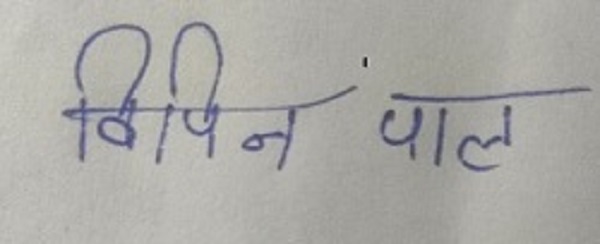 विपिन पाल